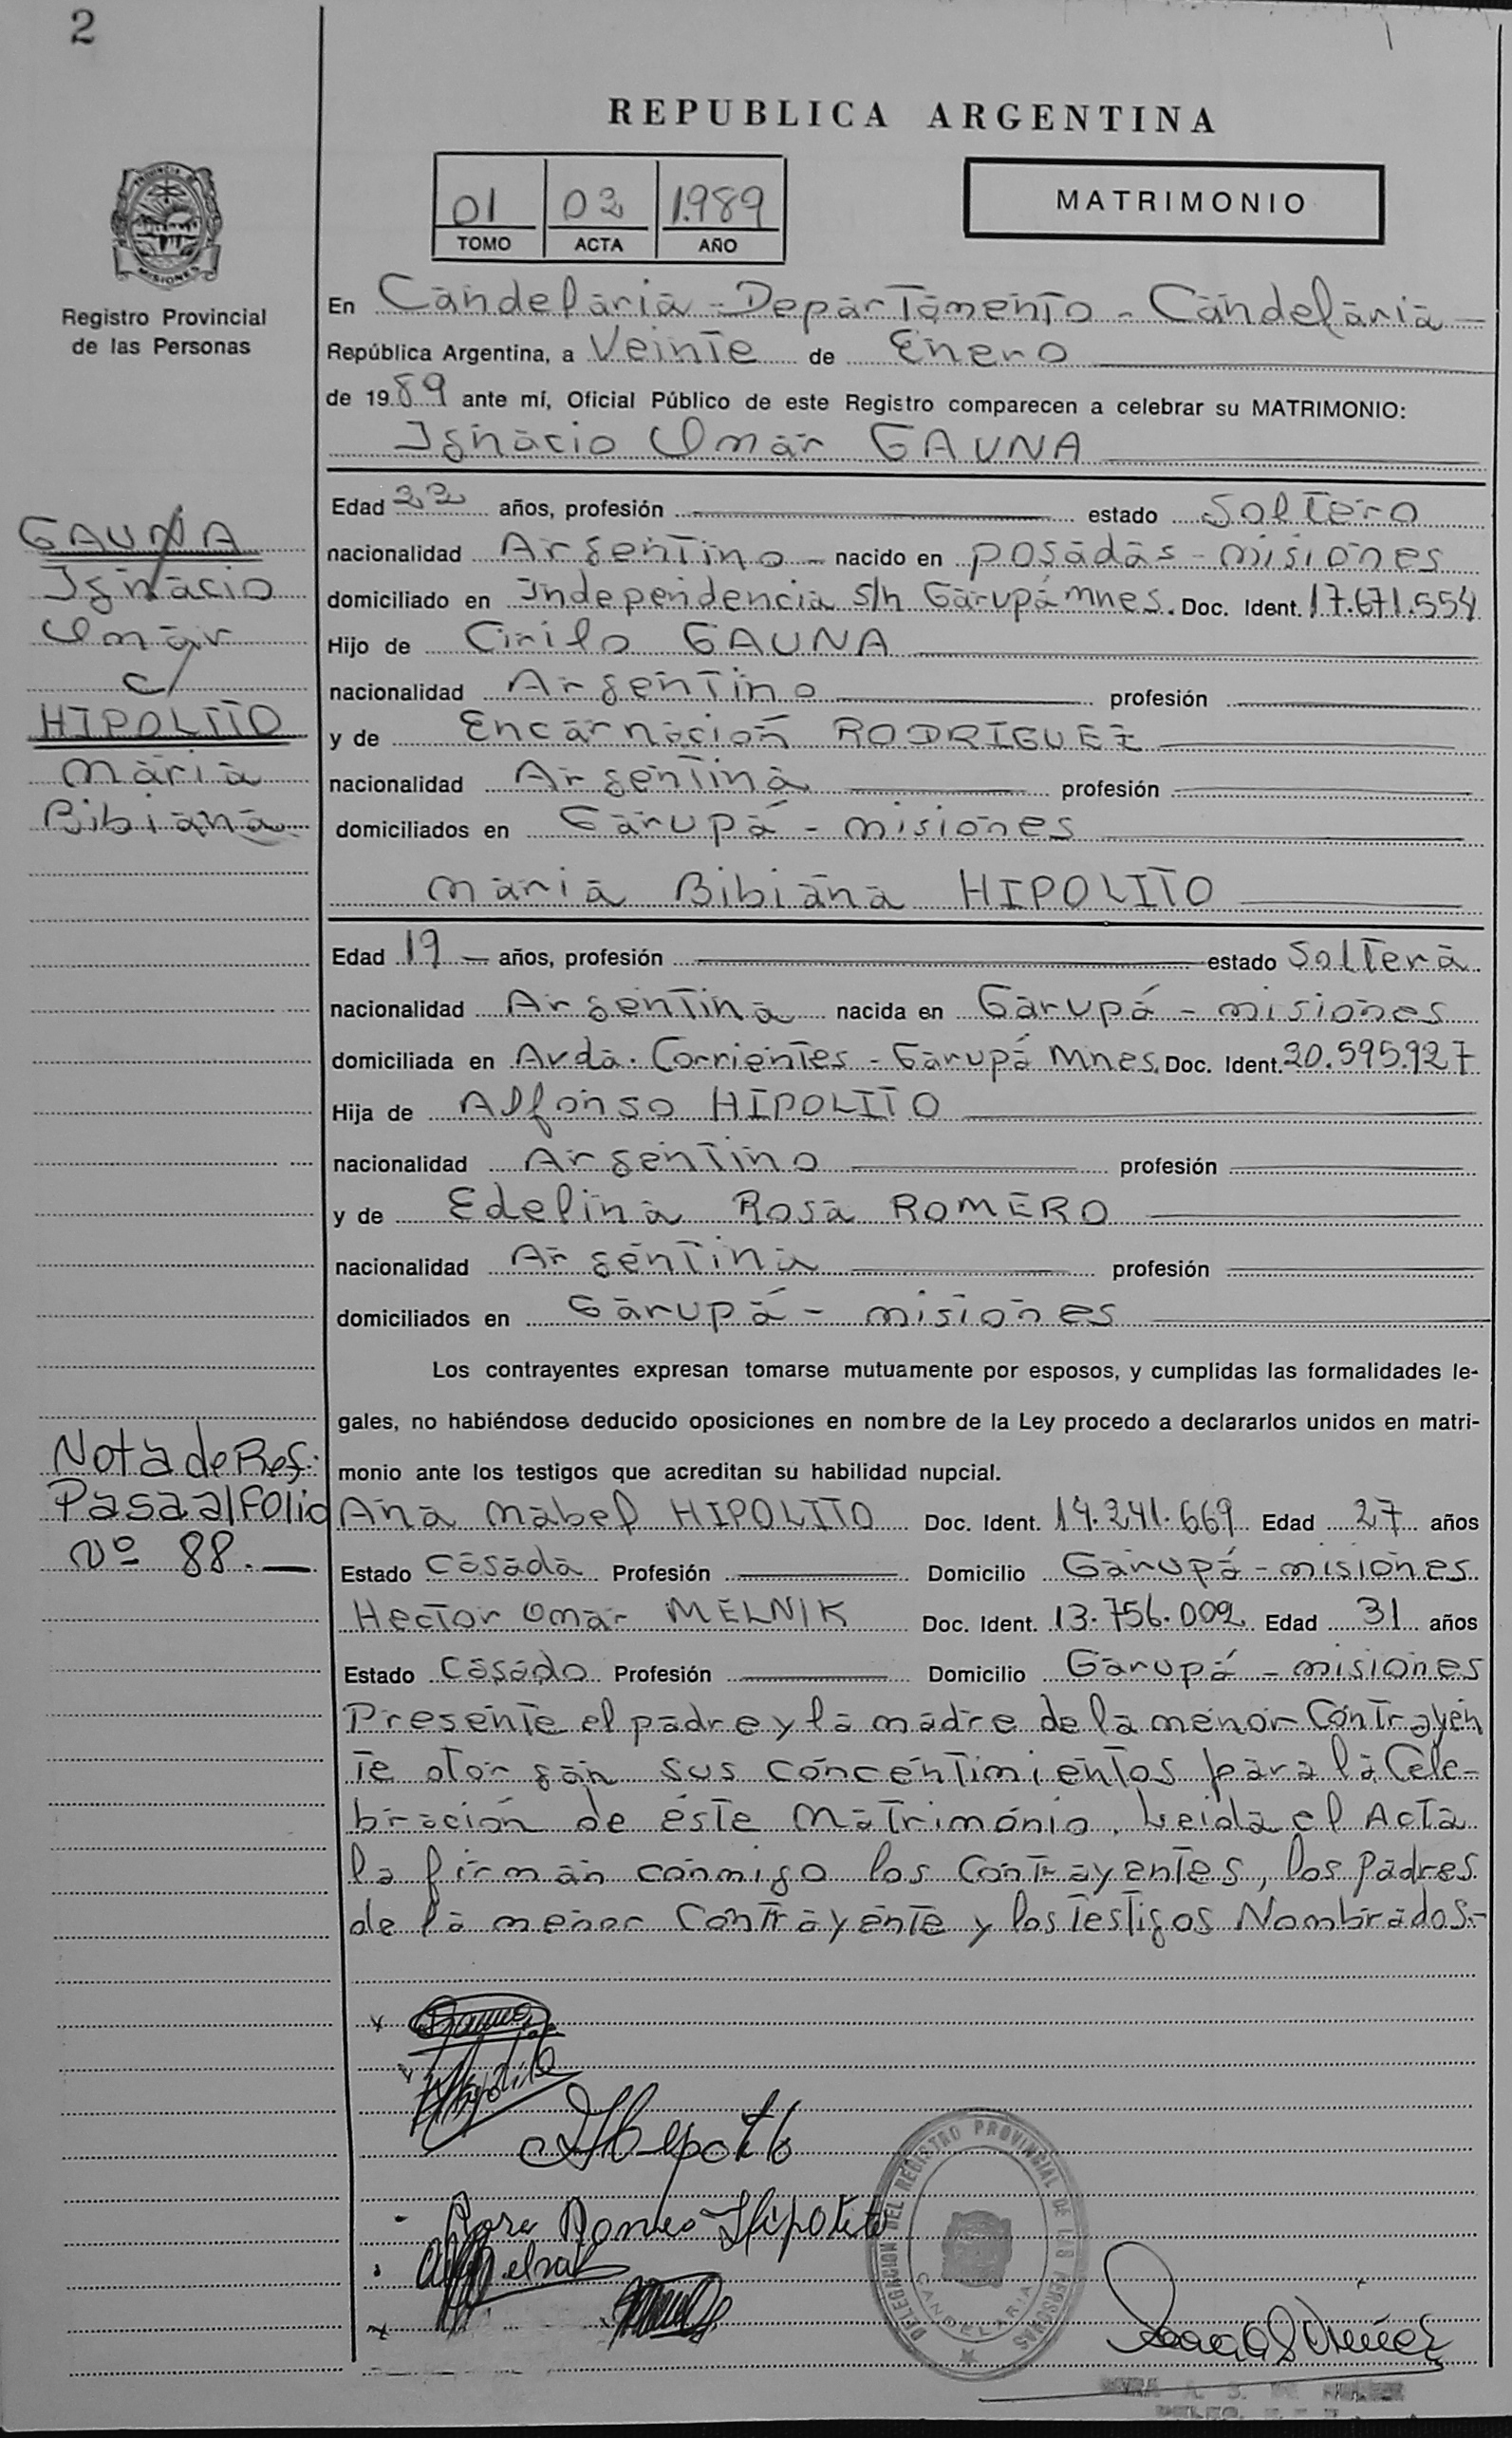 2
REPUBLICA ARGENTINA
01 02 1.989
TOMO ACTA AÑO
MATRIMONIO
PROVINCIA DE
MISIONES
Registro Provincial
de las Personas
En Candelaria - Departamento - Candelaria -
República Argentina, a Veinte de Enero
de 1989 ante mí, Oficial Público de este Registro comparecen a celebrar su MATRIMONIO:
Ignacio Omar GAUNA
GAUNA
Ignacio
Omar
c/
HIPOLITO
Maria
Bibiana
Edad 22 años, profesión estado Soltero
nacionalidad Argentino - nacido en posadas - misiones
domiciliado en Independencia s/n Garupá Mnes. Doc. Ident. 17.671.554
Hijo de Cirilo GAUNA
nacionalidad Argentino profesión
y de Encarnación RODRIGUEZ
nacionalidad Argentina profesión
domiciliados en Garupá - misiones
Maria Bibiana HIPOLITO
Edad 19 - años, profesión estado Soltera
nacionalidad Argentina nacida en Garupá - misiones
domiciliada en Avda. Corrientes - Garupá Mnes. Doc. Ident. 20.595.927
Hija de Alfonso HIPOLITO
nacionalidad Argentino profesión
y de Edelina Rosa ROMERO
nacionalidad Argentina profesión
domiciliados en Garupá - misiones
Los contrayentes expresan tomarse mutuamente por esposos, y cumplidas las formalidades le-
gales, no habiéndose deducido oposiciones en nombre de la Ley procedo a declararlos unidos en matri-
monio ante los testigos que acreditan su habilidad nupcial.
Nota de Ref.:
Pasa al Folio
Nº 88.-
Ana Mabel HIPOLITO Doc. Ident. 14.241.669 Edad 27 años
Estado Casada Profesión Domicilio Garupá - misiones
Hector Omar MELNIK Doc. Ident. 13.756.002 Edad 31 años
Estado Casado Profesión Domicilio Garupá - misiones
Presente el padre y la madre de la menor Contrayen
te otorgan sus concentimientos para la Cele-
bración de éste Matrimonio. Leida el Acta
la firman conmigo los Contrayentes, los padres
de la menor Contrayente y los Testigos Nombrados.-
Hipolito
Rosa Romero Hipolito
DELEGACION DEL REGISTRO PROVINCIAL DE LAS PERSONAS
CANDELARIA